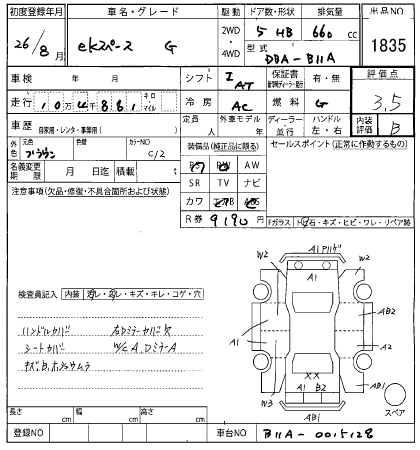 初度登録年月 車名・グレード 駆動 ドア数・形状 排気量 出品NO
26/8月 ekスペース G 2WD・4WD 5 HB 660 cc 1835
型式 DBA-B11A
車検 年 月 シフト I AT 保証書 新車時ディーラー発行 有・無 評価点
走行 10万4881 キロ マイル 冷房 AC 燃料 G 3.5
車歴 自家用・レンタ・事業用( ) 年式 外車モデル 年 ディーラー・並行 ハンドル 左・右 内装評価 B
外色 元色 ブラウン 色替 カラーNO C/2
装備品(純正品に限る) セールスポイント(正常に作動するもの)
PS PW AW
名義変更期限 月 日迄 積載 t SR TV ナビ
注意事項(欠品・修復・不具合箇所および状態) カワ エアB ABS
R券 9190 円 Fガラス トビ石・キズ・ヒビ・ワレ・リペア跡
検査員記入 内装 汚レ・スレ・キズ・キレ・コゲ・穴
ハンドルカバー 右Dミラーカバーズ
シートカバー W/C A、Dミラー A
A1 アリハゲ
W2 A1 W2
AB2
A1 A2
XX
W3 A1 B2 AB1
AB1
スペア
長さ cm 幅 cm 高さ cm
登録NO 車台NO B11A-0015128